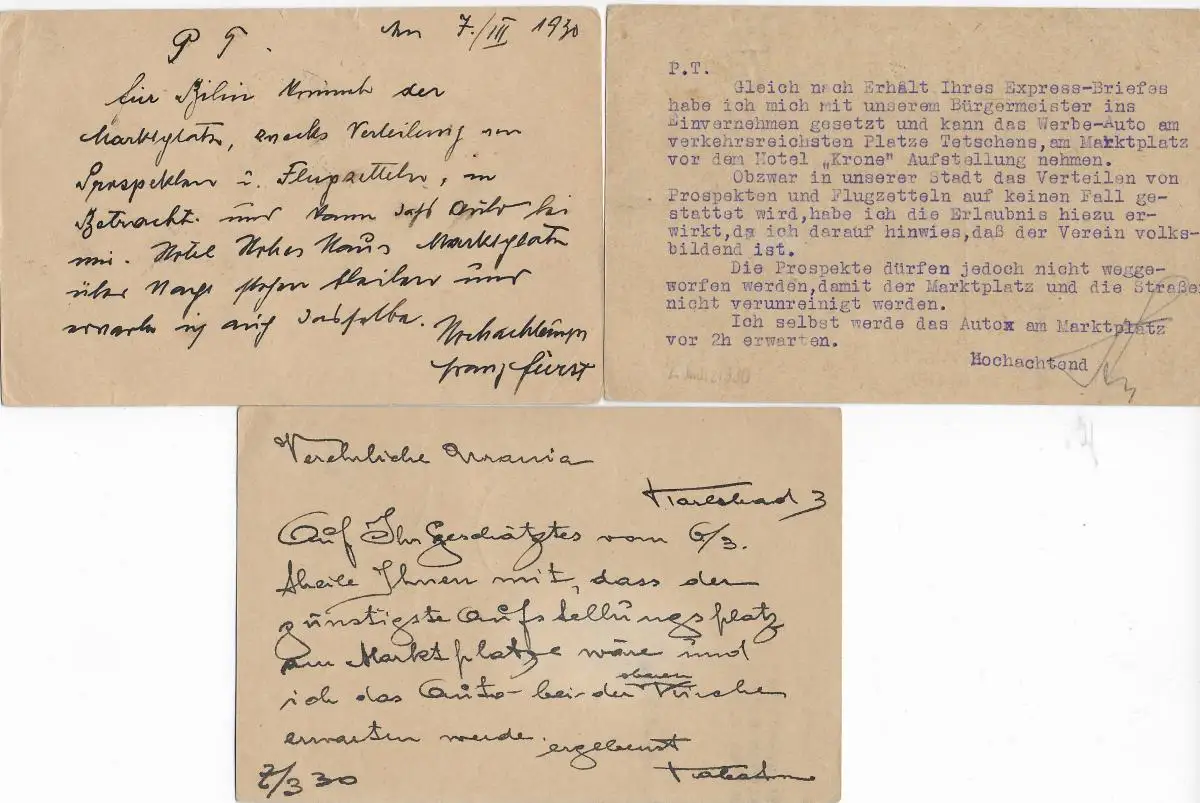 P T.
Am 7./III 1930
für Bilin kommt der
Marktplatz, zwecks Verteilung von
Prospekten u. Flugzetteln, in
Betracht und kann das Auto bei
mir Hotel Hohes Haus Marktplatz
über Nacht stehen bleiben und
erwarte ich auch dasselbe.
Hochachtungs
Franz Fürst
P.T.
Gleich nach Erhält Ihres Express-Briefes
habe ich mich mit unserem Bürgermeister ins
Einvernehmen gesetzt und kann das Werbe-Auto am
verkehrsreichsten Platze Tetschens,am Marktplatz
vor dem Hotel „Krone" Aufstellung nehmen.
Obzwar in unserer Stadt das Verteilen von
Prospekten und Flugzetteln auf keinen Fall ge-
stattet wird,habe ich die Erlaubnis hiezu er-
wirkt,da ich darauf hinwies,daß der Verein volks-
bildend ist.
Die Prospekte dürfen jedoch nicht wegge-
worfen werden,damit der Marktplatz und die Straßen
nicht verunreinigt werden.
Ich selbst werde das Autox am Marktplatz
vor 2h erwarten.
Hochachtend
Verehrliche Urania
Karlsbad 3
Auf Ihr Geschätztes vom 6/3.
theile Ihnen mit, dass der
günstigste Aufstellungsplatz
am Marktplatze wäre und
ich das Auto bei der oberen Kirche
erwarten werde.
ergebenst
7/3 30